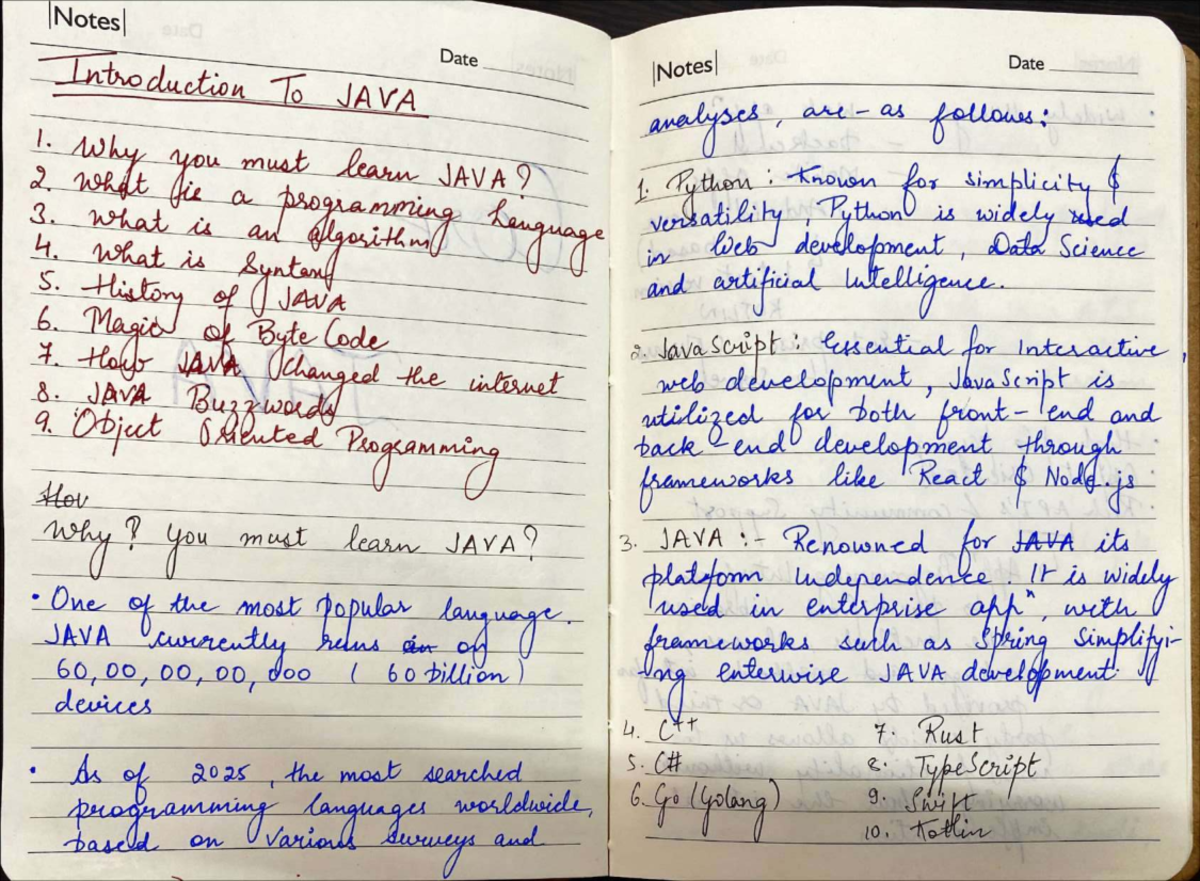 |Notes|
Date
Introduction To JAVA
1. Why you must learn JAVA?
2. What is a programming Language
3. What is an algorithm
4. What is Syntax
5. History of JAVA
6. Magic of Byte Code
7. How JAVA Changed the internet
8. JAVA Buzzwords
9. Object Oriented Programming
How
Why? You must learn JAVA?
• One of the most popular language.
JAVA currently runs on
60,00,00,00,000 (60 billion)
devices
• As of 2025, the most searched
programming languages worldwide,
based on various surveys and
|Notes|
Date
analyses, are - as follows:
1. Python: Known for simplicity &
versatility, Python is widely used
in Web development, Data Science
and artificial Intelligence.
2. JavaScript: Essential for Interactive,
web development, JavaScript is
utilized for both front-end and
back-end development through
frameworks like React & Node.js
3. JAVA :- Renowned for JAVA its
platform Independence. It is widely
used in enterprise appⁿ, with
frameworks such as Spring Simplifyi-
-ng enterwise JAVA development.
4. C++ 7. Rust
5. C# 8. TypeScript
6. Go (Golang) 9. Swift
10. Kotlin